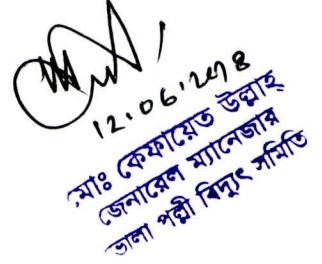 12.06.2018
মোঃ কেফায়েত উল্লাহ
জেনারেল ম্যানেজার
ভোলা পল্লী বিদ্যুৎ সমিতি